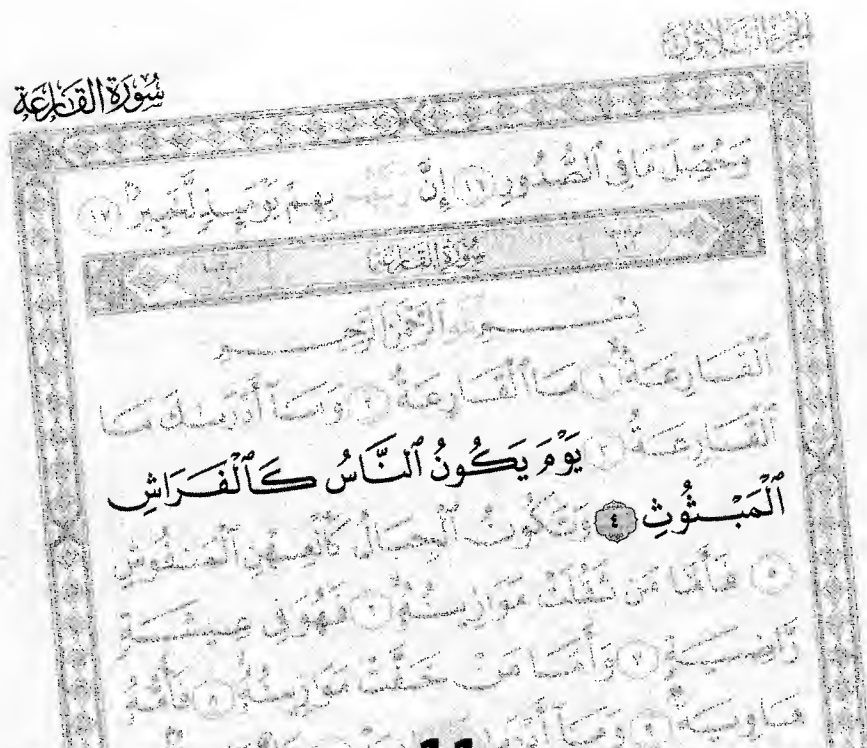 الجزء الثلاثون
سُورَةُ القَارِعَةِ
وَحُصِّلَ مَا فِي ٱلصُّدُورِ ١٠ إِنَّ رَبَّهُم بِهِمْ يَوْمَئِذٍ لَّخَبِيرٌ ١٧
سُورَةُ القَارِعَةِ
بِسْمِ ٱللَّهِ ٱلرَّحْمَٰنِ ٱلرَّحِيمِ
ٱلْقَارِعَةُ ١ مَا ٱلْقَارِعَةُ ٢ وَمَآ أَدْرَىٰكَ مَا
ٱلْقَارِعَةُ ٣ يَوْمَ يَكُونُ ٱلنَّاسُ كَٱلْفَرَاشِ
ٱلْمَبْثُوثِ ٤ وَتَكُونُ ٱلْجِبَالُ كَٱلْعِهْنِ ٱلْمَنفُوشِ
٥ فَأَمَّا مَن ثَقُلَتْ مَوَٰزِينُهُۥ ٦ فَهُوَ فِى عِيشَةٍ
رَّاضِيَةٍ ٧ وَأَمَّا مَنْ خَفَّتْ مَوَٰزِينُهُۥ ٨ فَأُمُّهُۥ
هَاوِيَةٌ ٩ وَمَآ أَدْرَىٰكَ